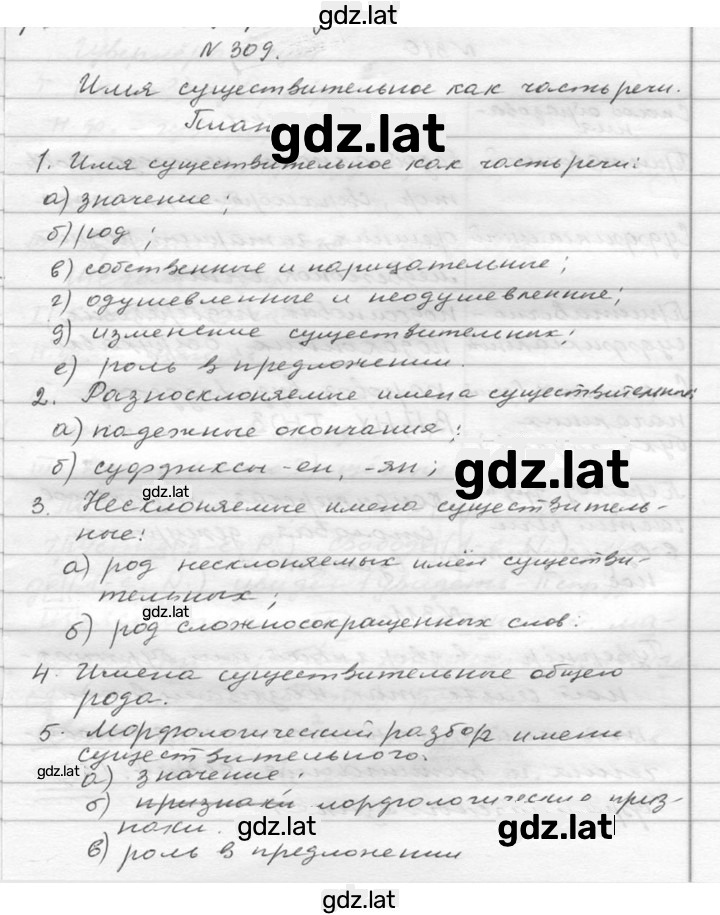 gdz.lat
N 309.
Имя существительное как часть речи.
План
gdz.lat
1. Имя существительное как часть речи:
а) значение;
б) род;
в) собственные и нарицательные;
г) одушевленные и неодушевленные;
д) изменение существительных;
е) роль в предложении.
2. Разносклоняемые имена существительные:
а) падежные окончания;
б) суффиксы -ен, -ян;
gdz.lat
gdz.lat
3. Несклоняемые имена существитель-
ные:
а) род несклоняемых имён существи-
тельных;
gdz.lat
б) род сложносокращенных слов.
4. Имена существительные общего
рода.
5. Морфологический разбор имени
существительного.
gdz.lat
а) значение;
б) признаки морфологические приз-
наки.
gdz.lat
gdz.lat
в) роль в предложении
gdz.lat